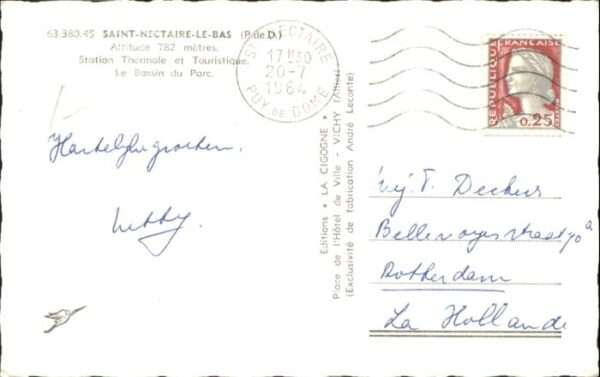 63.380.45 SAINT-NECTAIRE-LE-BAS (P. de D.)
Altitude 782 mètres.
Station Thermale et Touristique.
Le Bassin du Parc.
ST NECTAIRE
17H30
20-7
1964
PUY DE DOME
REPUBLIQUE FRANCAISE
0,25
Hartelijke groeten.
Editions • LA CIGOGNE •
Place de l'Hôtel de Ville - VICHY (Allier)
(Exclusivité de fabrication André Leconte)
T. Dekker
Bellevoysstraat 90a
Rotterdam
La Hollande